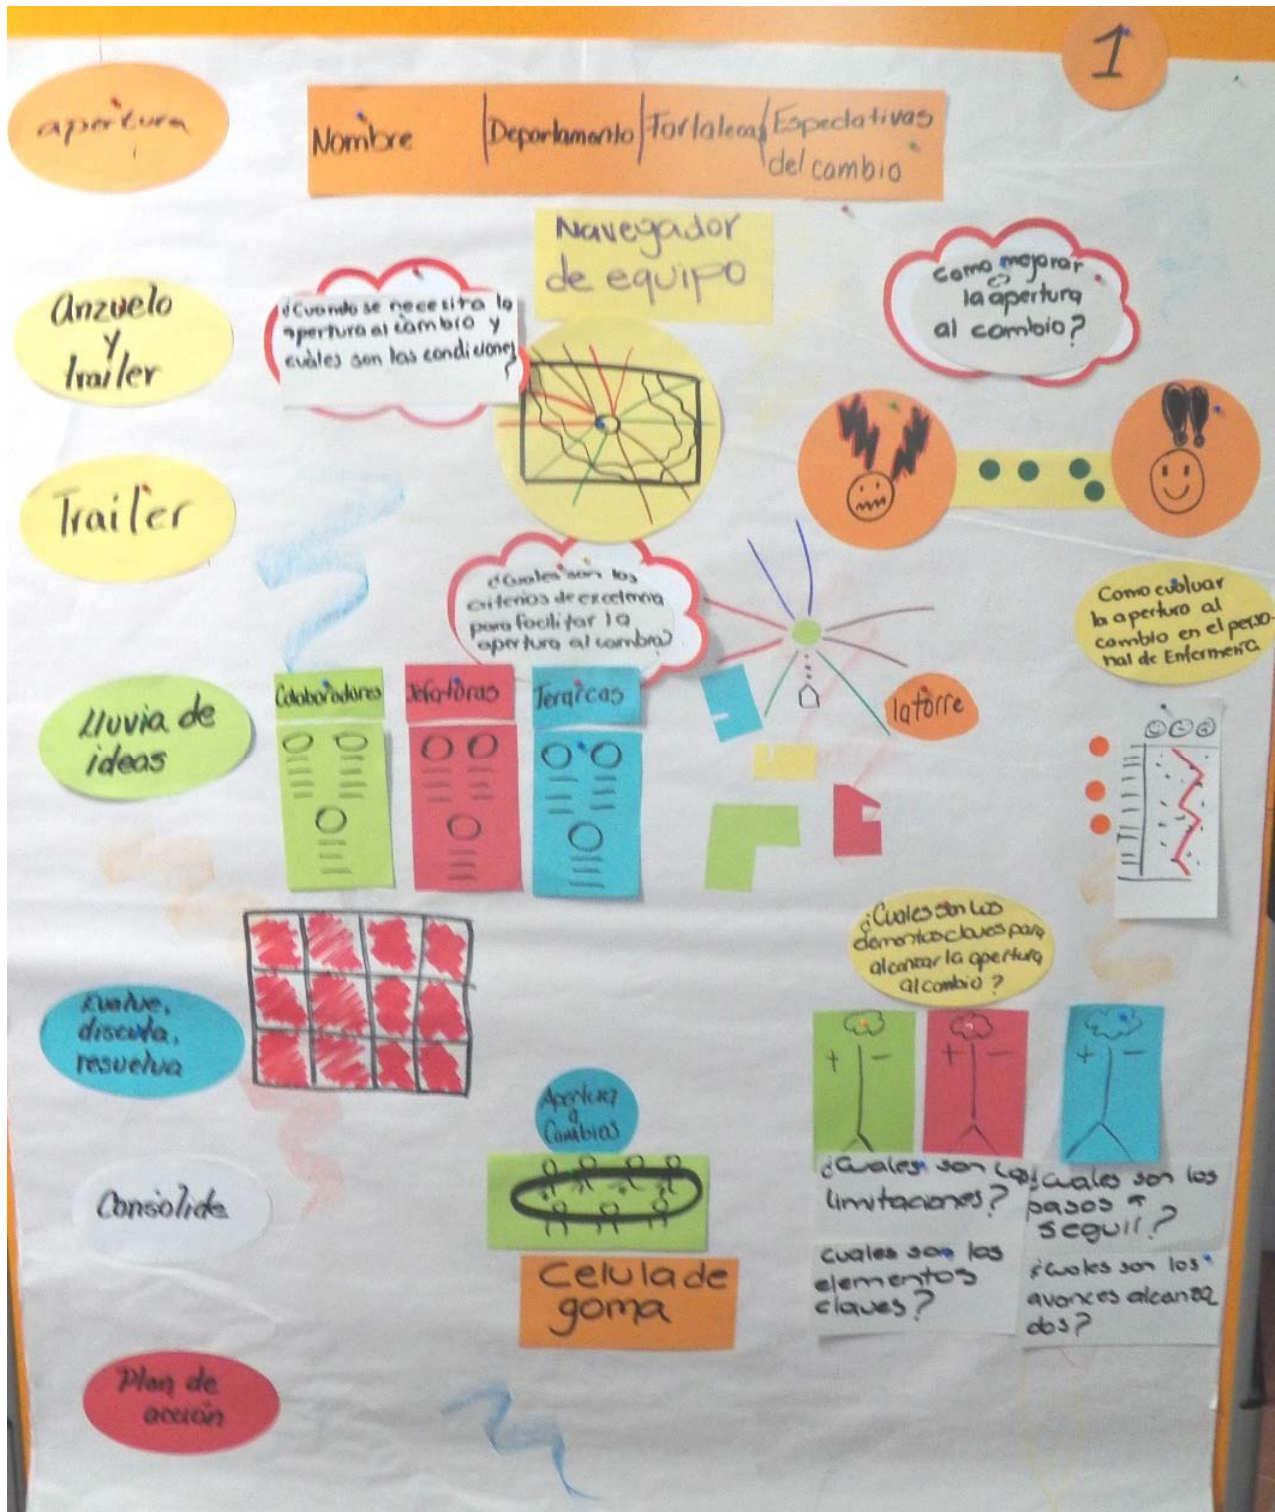 1
apertura
Nombre | Departamento | Fortalezas | Espectativas
del cambio
Navegador
de equipo
Anzuelo
y
trailer
¿Cuando se necesita la
apertura al cambio y
cuáles son las condiciones
?
Como mejorar
la apertura
al cambio?
Trailer
¿Cuales son los
criterios de excelencia
para facilitar la
apertura al cambio?
Como evaluar
la apertura al
cambio en el perso-
nal de Enfermeria
Lluvia de
ideas
Colaboradores
Jefaturas
la torre
Evalue,
discuta,
resuelva
¿Cuales son los
elementos claves para
alcanzar la apertura
al cambio?
+ -
+ -
+ -
Apertura
a
Cambios
Consolide
Celula de
goma
¿Cuales son los
limitaciones?
¿Cuales son los
pasos a
seguir?
cuales son los
elementos
claves?
¿Cuales son los
avances alcanza
dos?
Plan de
acción